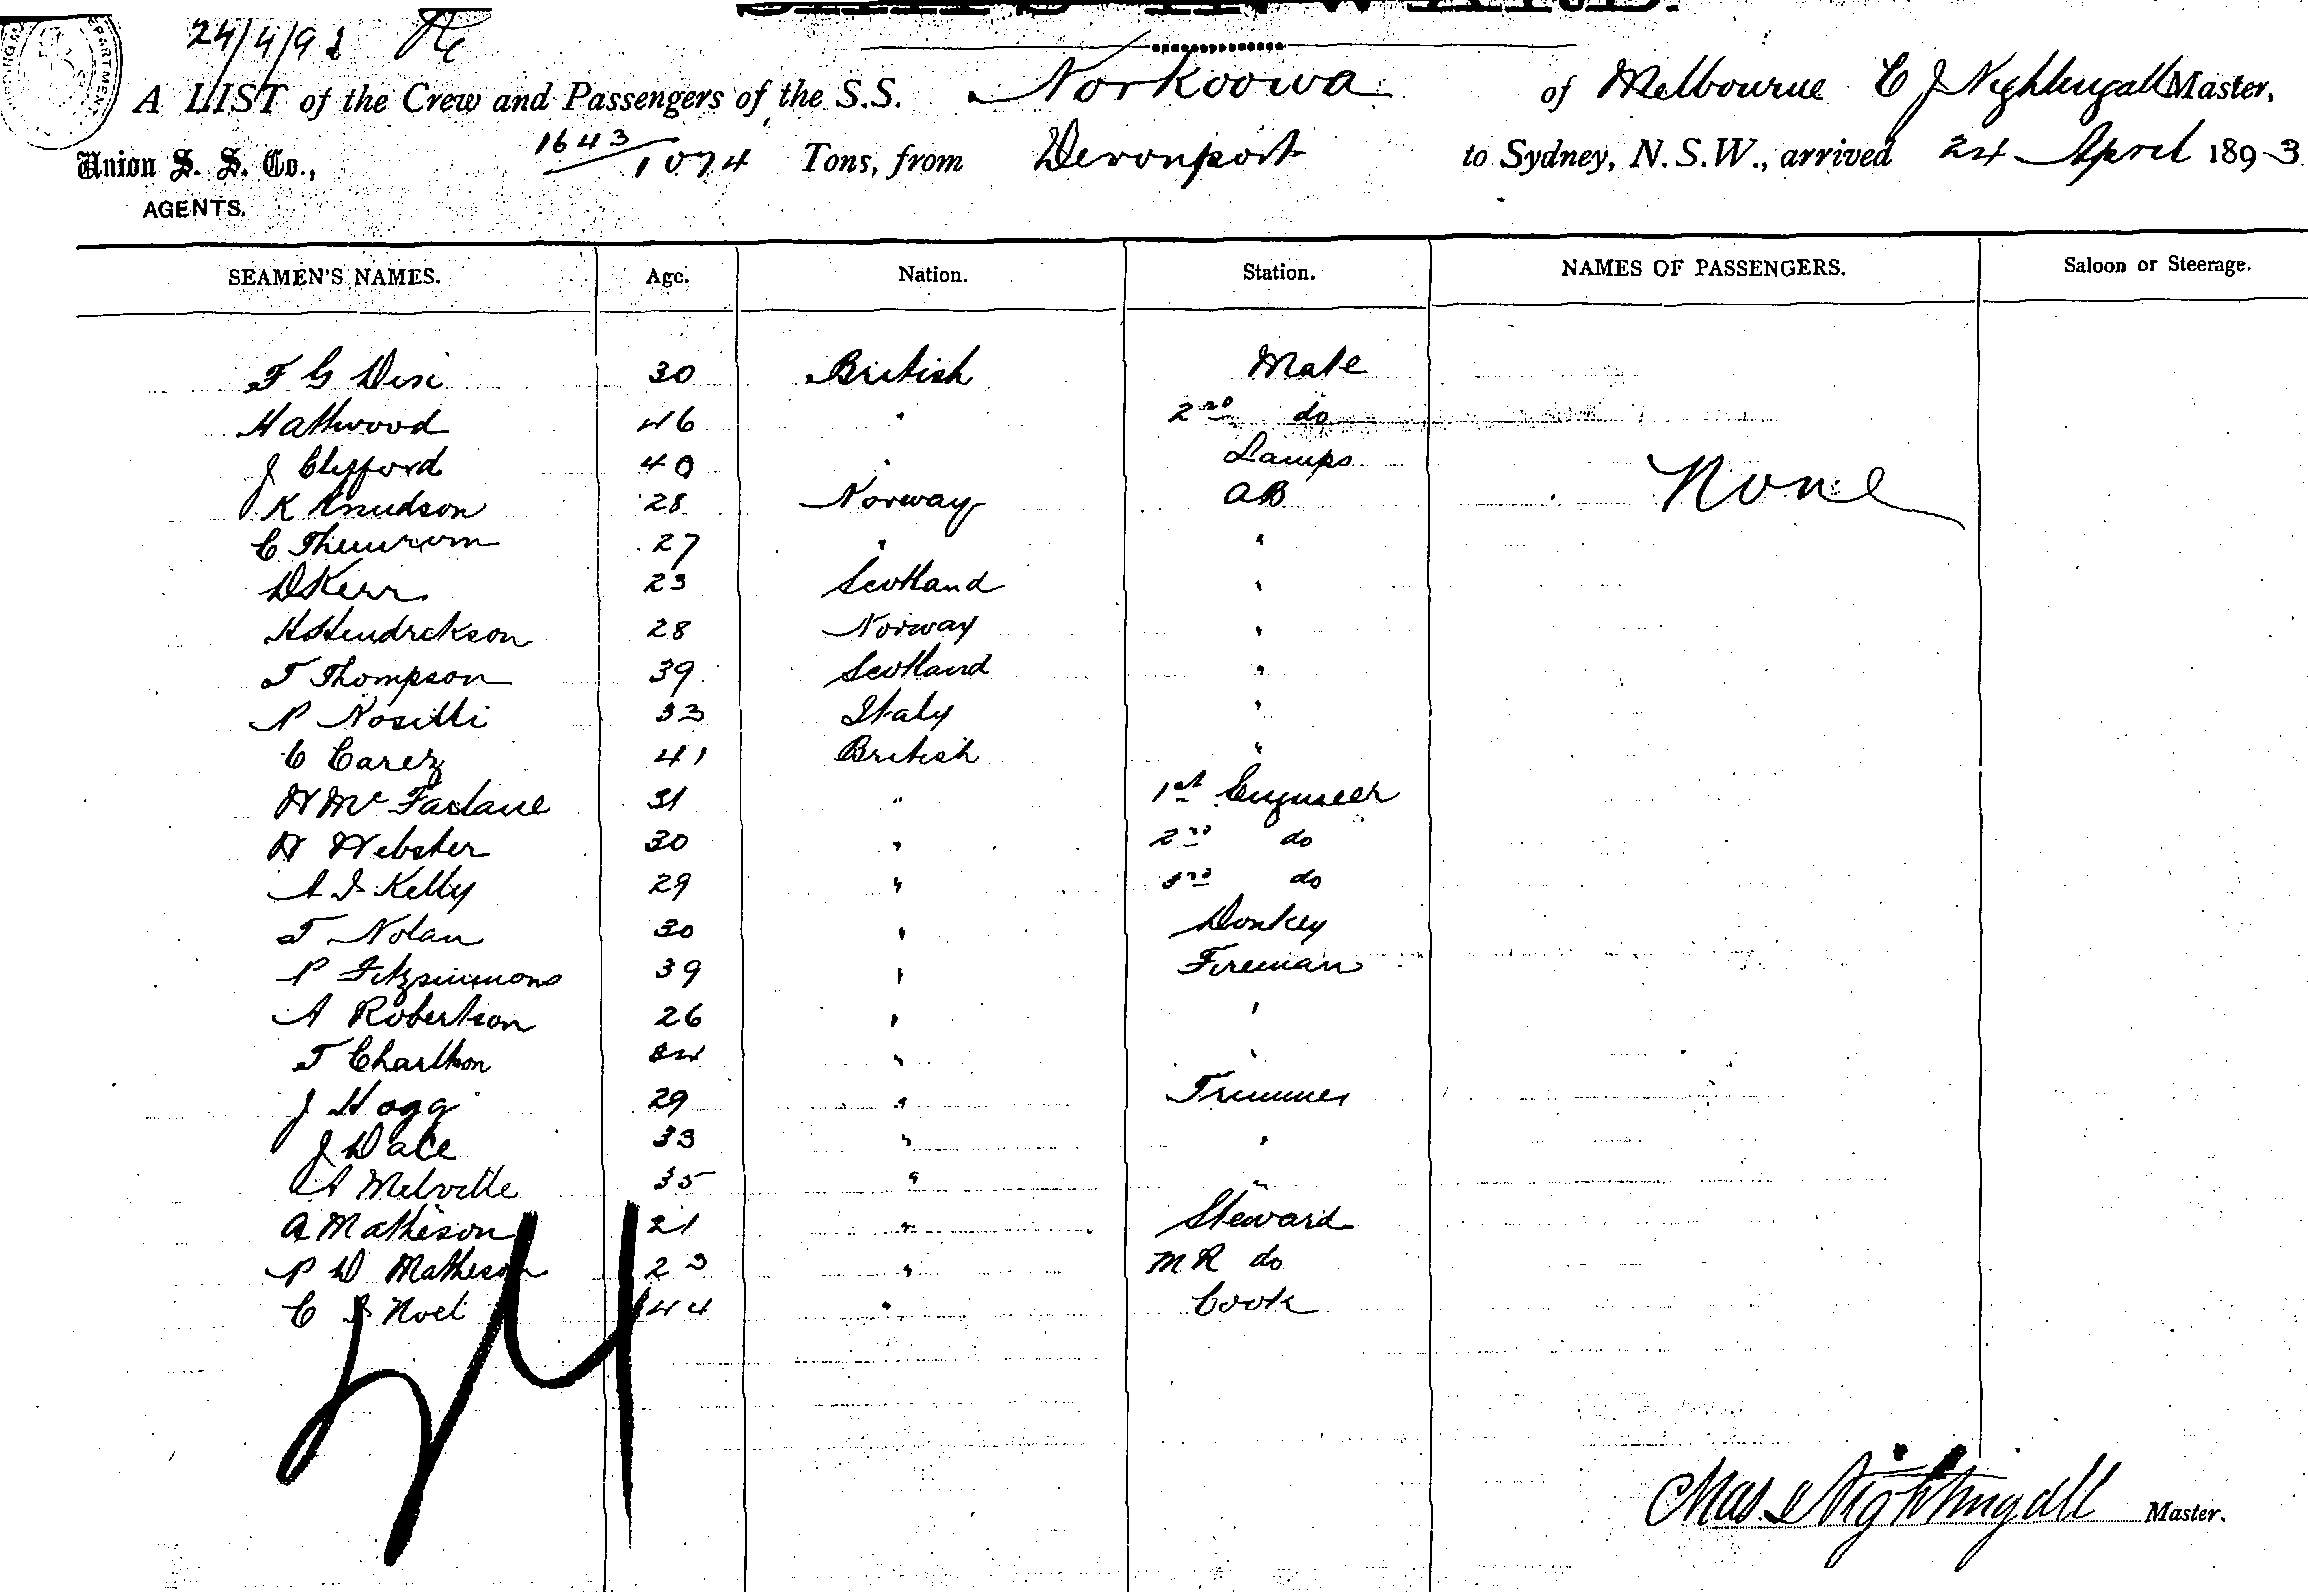 24/4/93
A LIST of the Crew and Passengers of the S.S. Norkoowa of Melbourne C J Nightingall Master,
Union S. S. Co., 1643/1074 Tons, from Devonport to Sydney, N.S.W., arrived 24 April 1893
AGENTS.
SEAMEN'S NAMES. Age. Nation. Station. NAMES OF PASSENGERS. Saloon or Steerage.
F G 30 British Mate
H Attwood 46 " 2nd do
J Clifford 40 " Lamps
None
K Knudson 28 Norway AB
C 27 " "
D Kerr 23 Scotland "
H Hendrekson 28 Norway "
T Thompson 39 Scotland "
P Rositti 33 Italy "
C Carez 41 British "
W Mc Farlane 31 " 1st Engineer
W Webster 30 " 2nd do
A J Kelly 29 " 3rd do
T Nolan 30 " Donkey
P Fitzsimmons 39 " Fireman
A Robertson 26 " "
T Charlton 34 " "
J Hogg 29 " Trimmer
J Dale 33 " "
A Melville 35 " "
A Matheson 21 " Steward
P D Matheson 23 " M R do
C J Noel 44 " Cook
Chas Nightingall Master.